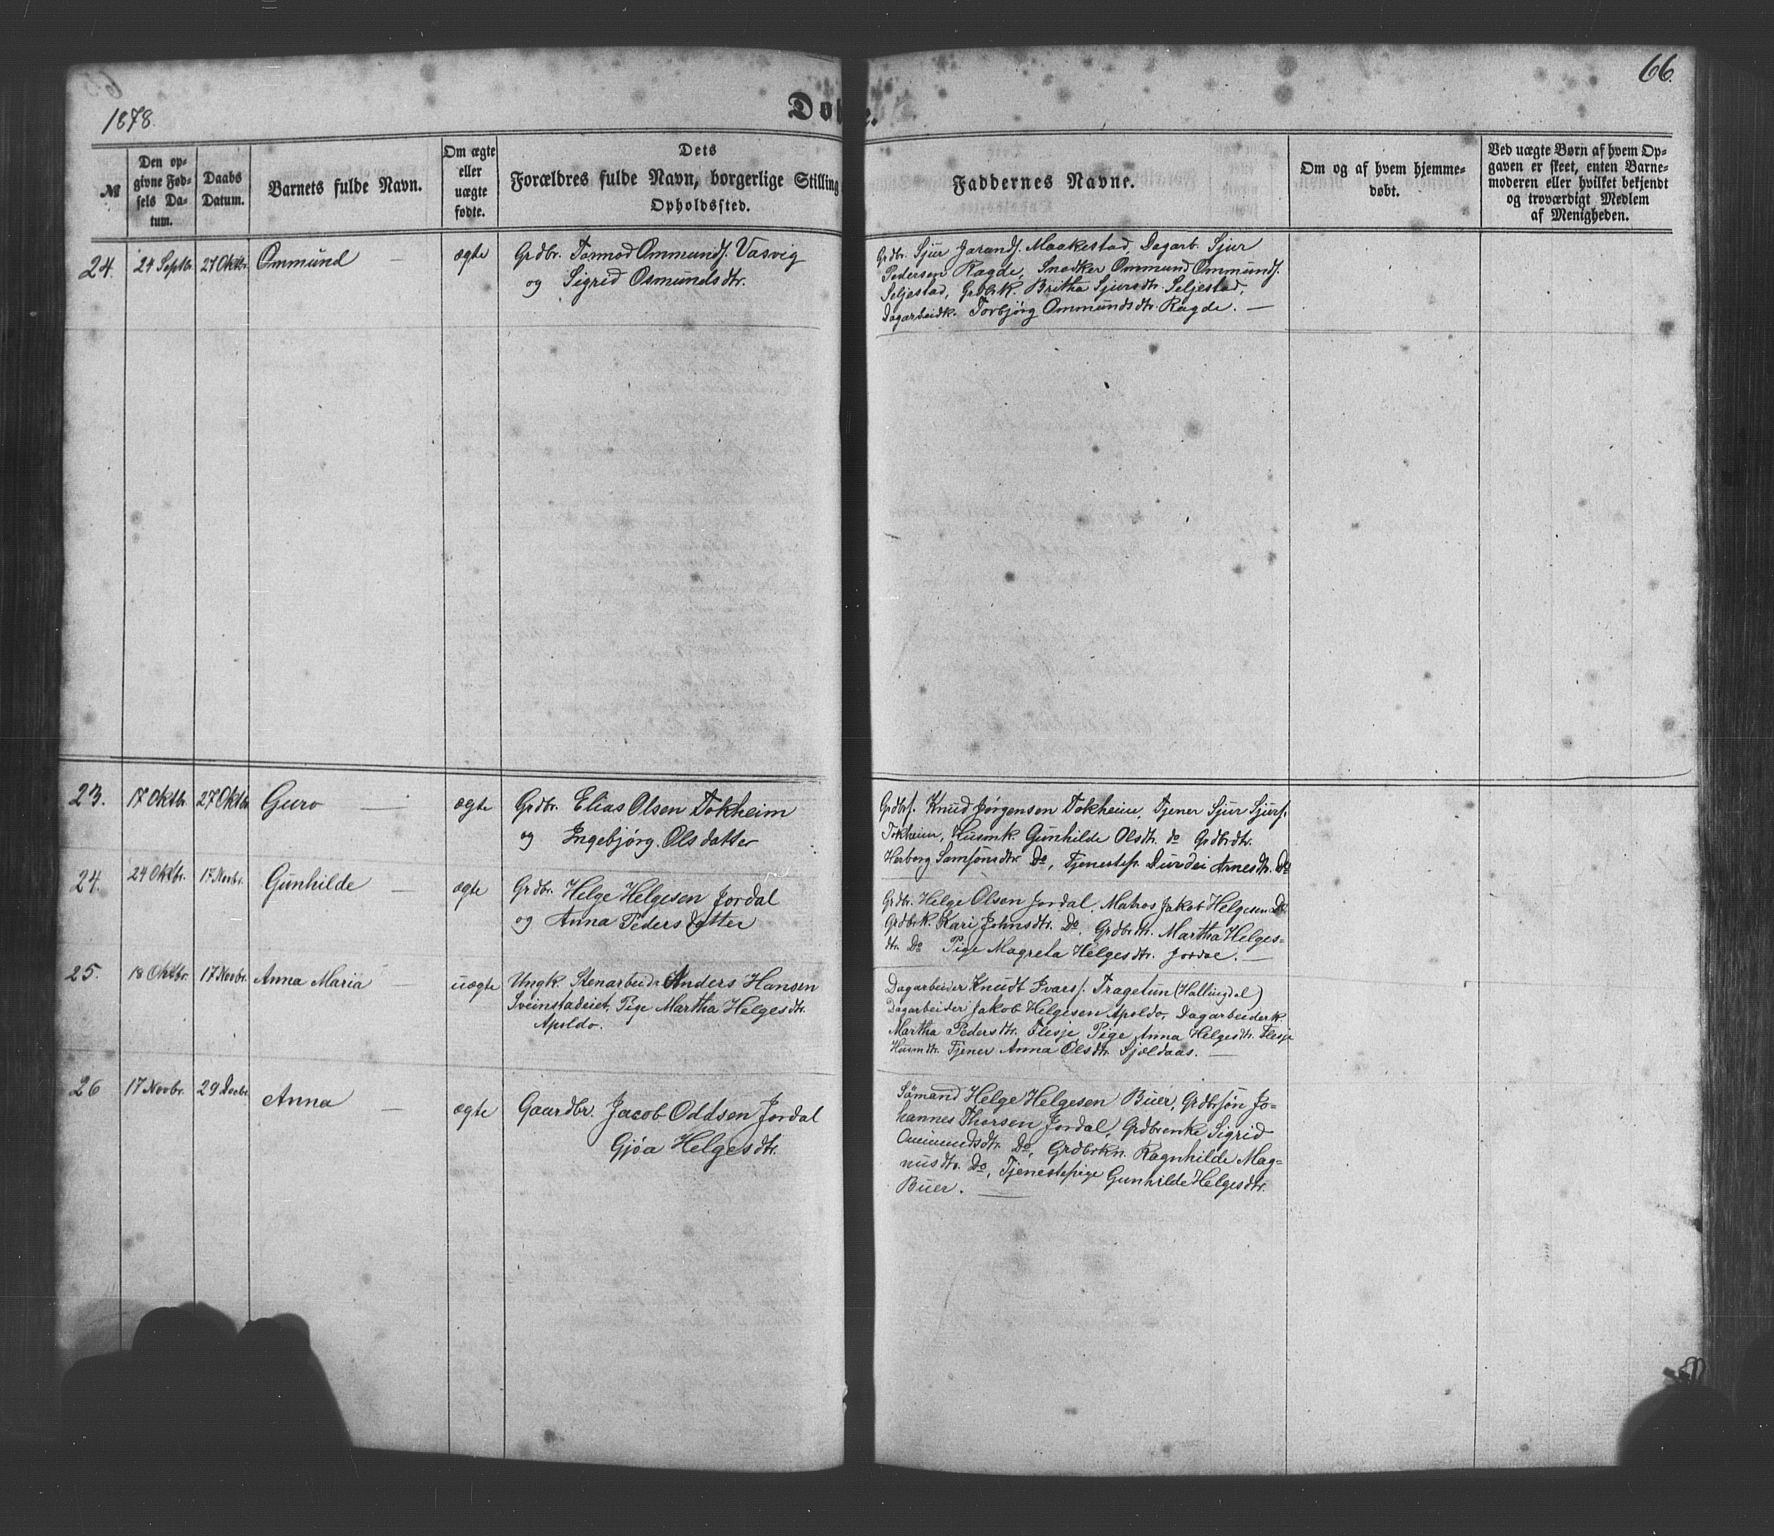 1878.
Døbte.
66.
№
Den opgivne Fødsels Datum.
Daabs Datum.
Barnets fulde Navn.
Om ægte eller uægte fødte.
Dets Forældres fulde Navn, borgerlige Stilling Opholdssted.
Faddernes Navne.
Om og af hvem hjemmedøbt.
Ved uægte Børn af hvem Opgaven er skeet, enten Barnemoderen eller hvilket bekjendt og troværdigt Medlem af Menigheden.
24. 24 Septbr. 27 Oktbr. Ommund — ægte Grdbr. Tormod Ommunds. Vasvig
og Sigrid Osmundsdtr.
Grdbr. Sjur Jarands. Maakestad, Dagarb. Sjur
Pedersen Ragde, Snedker Ommund Ommunds.
Seljestad, Grdbrk. Britha Sjursdtr. Seljestad,
Dagarbeidk. Torbjørg Ommundsdtr. Ragde. —
23. 17 Oktbr. 27 Oktbr. Guro — ægte Grdbr. Elias Olsen Tokheim
og Ingebjørg Olsdatter
Grdbrs. Knud Jørgensen Tokheim, Tjener Sjur Sjurs.
Tokheim, Husmk. Gunhilde Olsdtr. do Grdbrdtr.
Herborg Samsonsdtr. Do, Tjenestep. Durdei Arnesdtr. Do
24. 24 Oktbr. 17 Novbr. Gunhilde — ægte Grdbr. Helge Helgesen Jordal
og Anna Pedersdatter
Grdbr. Helge Olsen Jordal, Matros Jakob Helgesen Do.
Grdbrk. Kari Johnsdtr. Do, Grdbrdtr. Martha Helges-
dtr. Do Pige Magreta Helgesdtr. Jordal. —
25. 18 Oktbr. 17 Novbr. Anna Maria — uægte Ungk. Stenarbeidr. Anders Hansen
Sveinstadeiet, Pige Martha Helgesdtr.
Apoldo.
Dagarbeider Knudt Ivars. Tragetun (Hallingdal)
Dagarbeider Jakob Helgesen Apoldo, Dagarbeiderk.
Martha Pedersdtr. Flesje Pige Anna Helgesdtr. Flesje
Husmdtr. Tjener Anna Olsdtr. Sjoldaas. —
26 17 Novbr. 29 Decbr. Anna — ægte Gaardbr. Jacob Oddsen Jordal
Gjøa Helgesdtr.
Sømand Helge Helgesen Buer, Grdbrsøn Jo-
hannes Thorsen Jordal, Grdbrenke Sigrid
Ommundsdtr. Do, Grdbrkn. Ragnhilde Mag-
nusdtr. Do, Tjenestepige Gunhilde Helgesdtr.
Buer. —